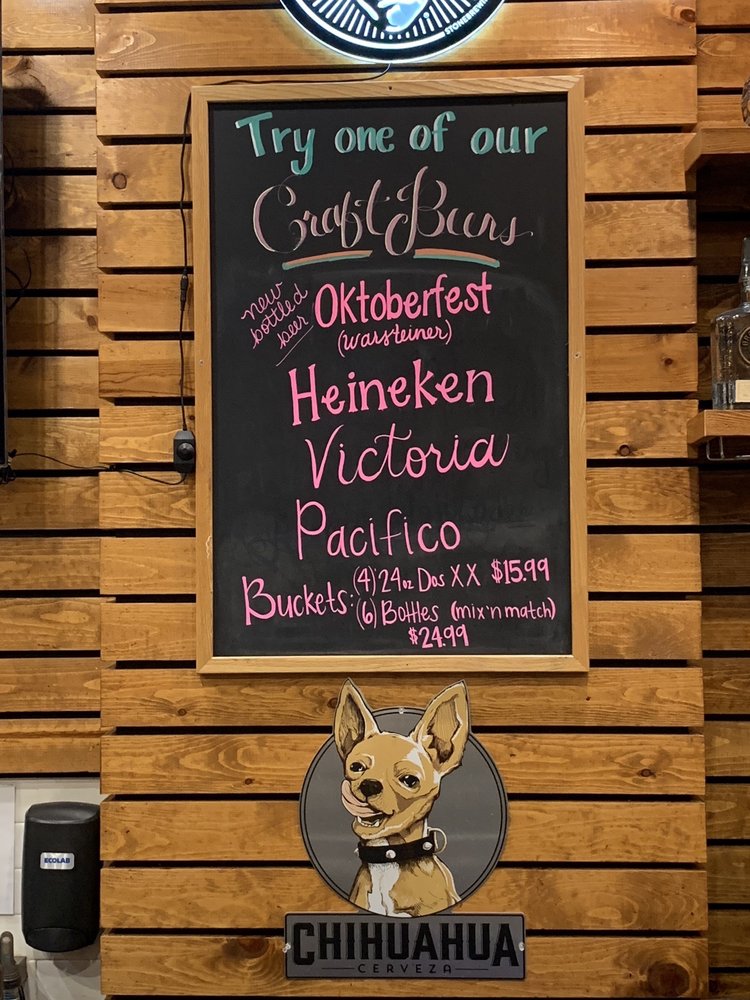 STONEBREWIN
Try one of our
Craft Beers
new
bottled
beer
Oktoberfest
(warsteiner)
Heineken
Victoria
Pacifico
Buckets: (4) 24oz Dos XX $15.99
(6) Bottles (mix'n match)
$24.99
ECOLAB
CHIHUAHUA
CERVEZA